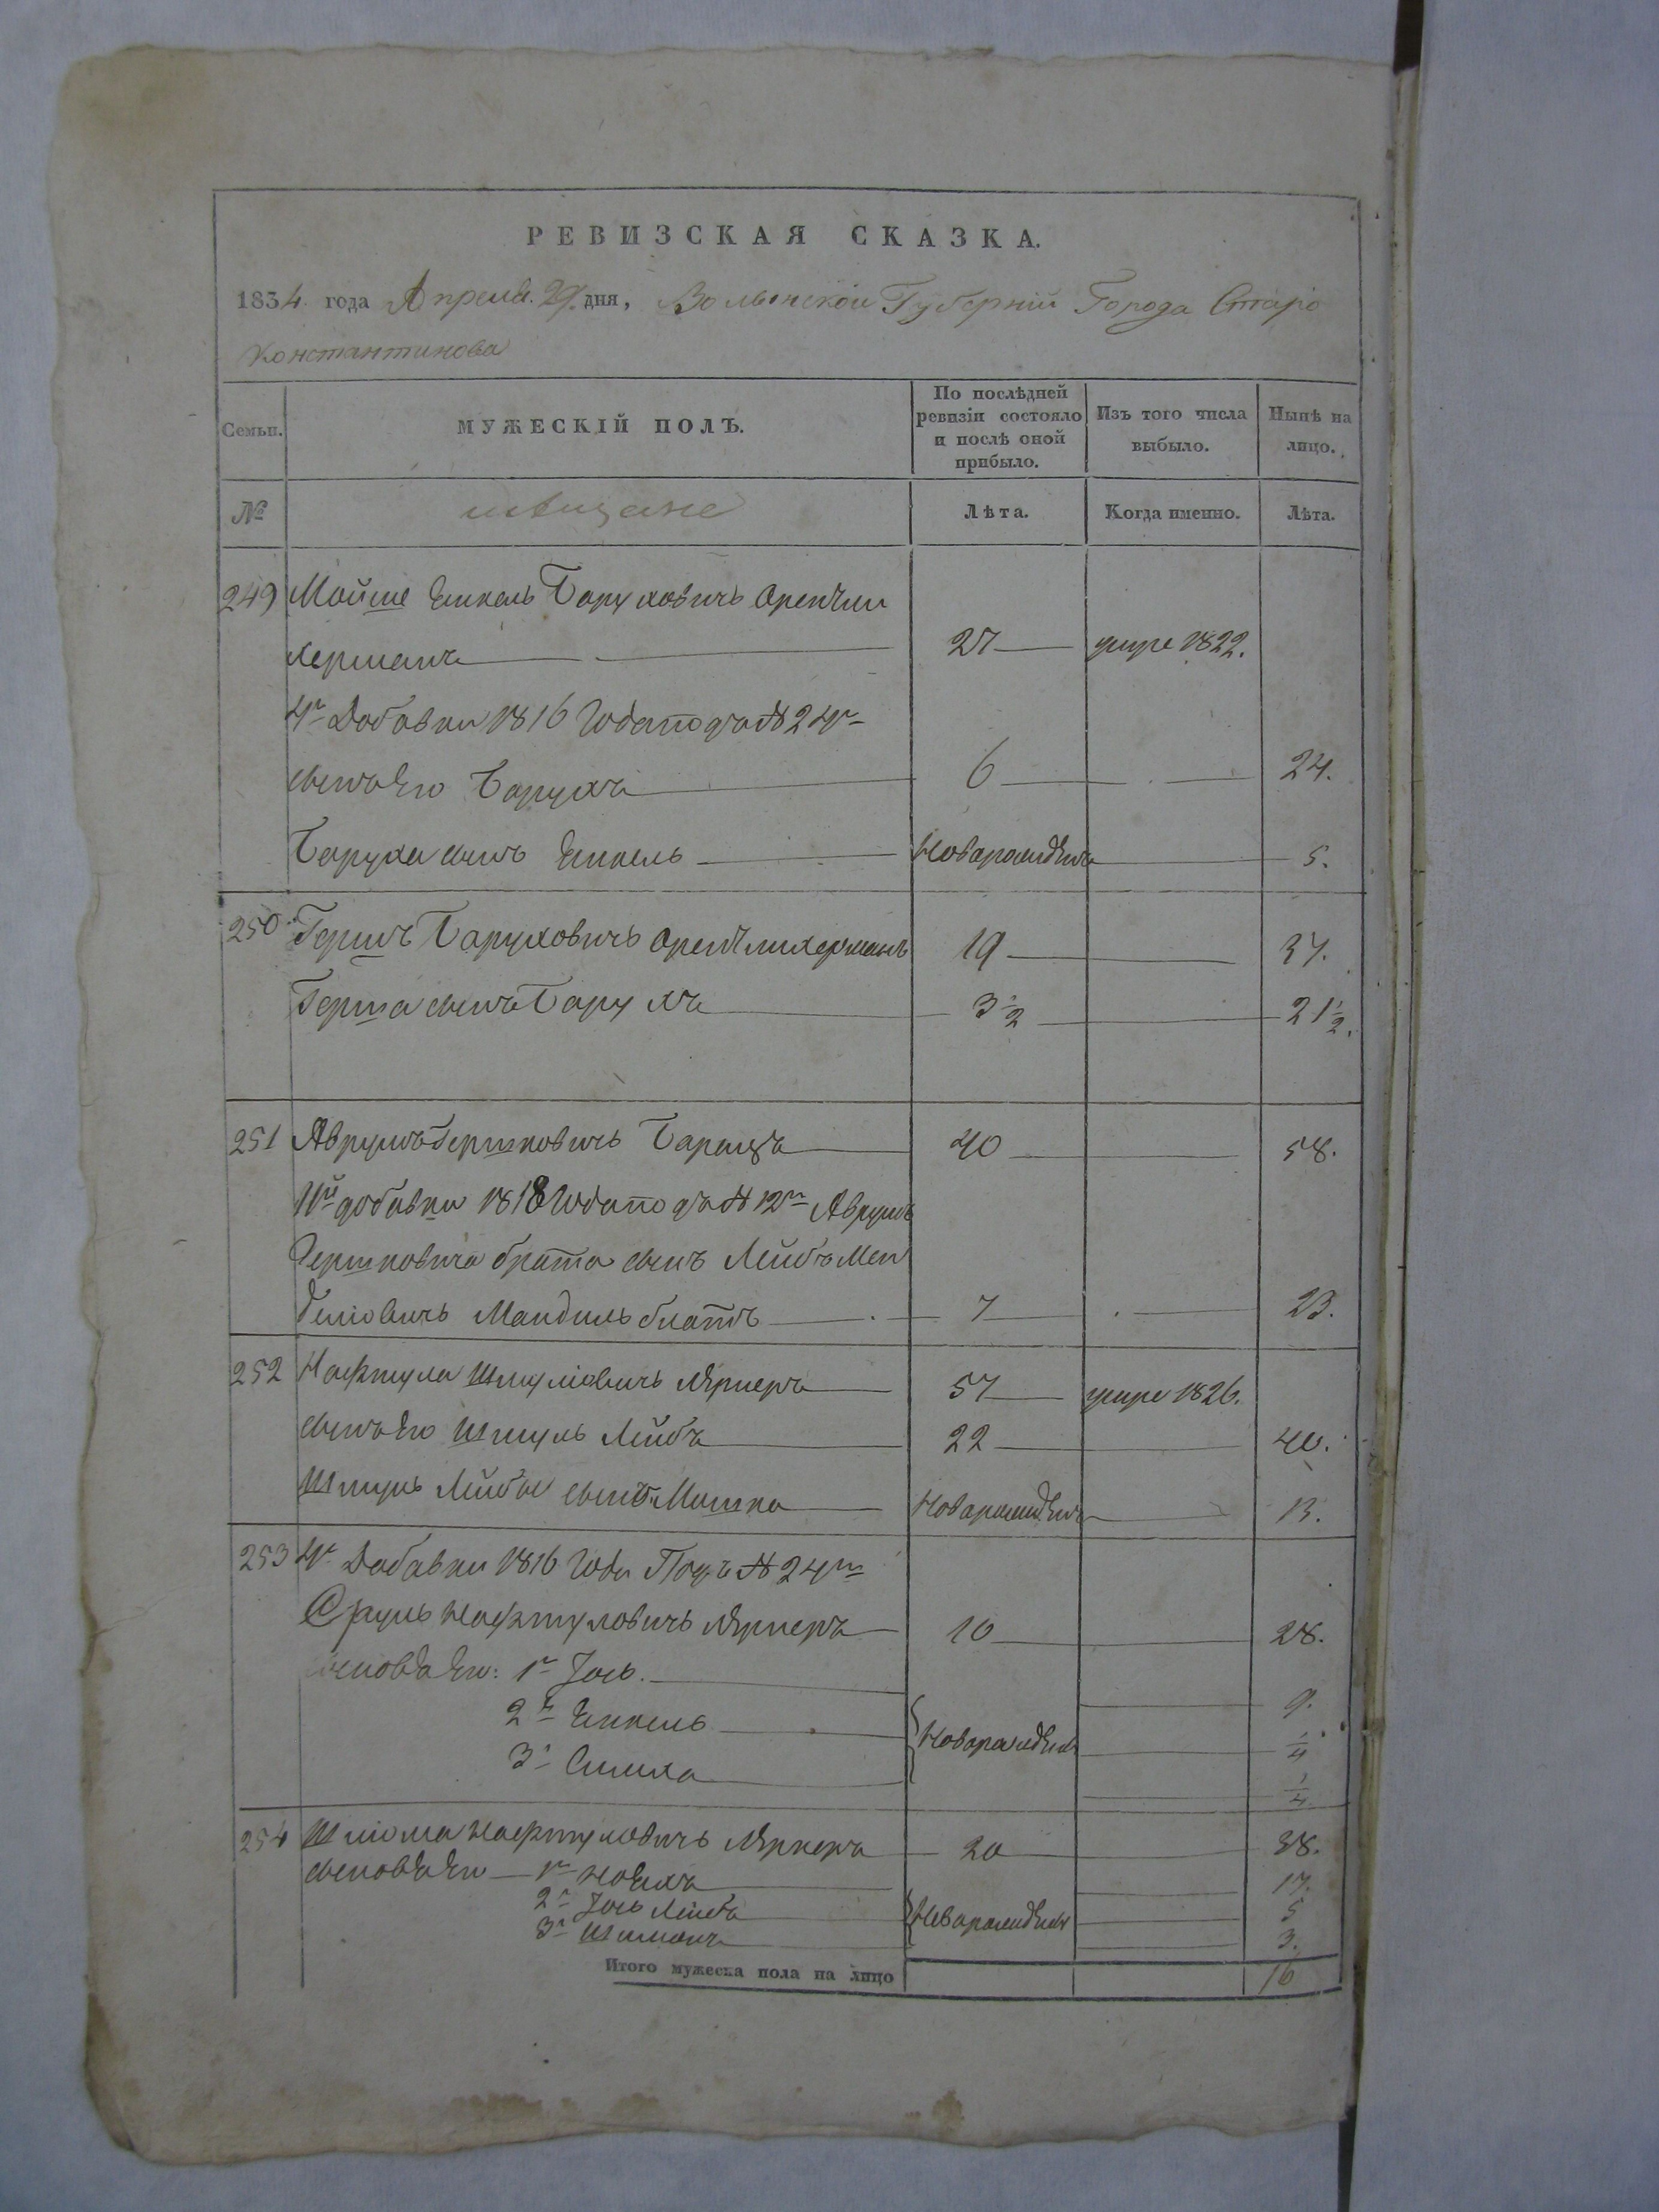 РЕВИЗСКАЯ СКАЗКА.
1834 года Апреля 29 дня, Волынской Губернии Города Старо
Константинова
Семьи. МУЖЕСКІЙ ПОЛЪ. По послѣдней ревизіи состояло и послѣ оной прибыло. Изъ того числа выбыло. Нынѣ на лицо.
№ мѣщане Лѣта. Когда именно. Лѣта.
249 Мойше Янкель Барухович
27 умре 1822.
4я Добавки 1816 Года подъ № 24м
сынъ Его Барухъ 6 24.
Баруха сынъ Янкель Новорожденъ 5.
250 Гершъ Баруховичъ 19 37.
Герша сынъ Барухъ 3 1/2 21 1/2.
251 Аврумъ Гершковичъ Баранъ 40 58.
добавки 1818 Года подъ № 12м Аврумъ
Гершковича брата сынъ Лейбъ Мен
делiовичъ Мандильблатъ 7 23.
252 Нафтула Шмулiовичъ Лернеръ 57 умре 1826.
сынъ Его Шмуль Лейбъ 22 40.
Шмуль Лейбы сынъ Мошко Новорожденъ 13.
253 4я Добавки 1816 Года Подъ № 24м
Сруль Нафтуловичъ Лернеръ 10 28.
сыновья Его: 1й Іось. 9.
2й Янкель Новорожден 1/4
3й Симха 1/4
254 Шлiома Нафтуловичъ Лернеръ 20 38.
сыновья Его 1й Ноехъ 17.
2й Іось Лейба Новорожден 5
3й Шимонъ 3.
Итого мужеска пола на лицо 16